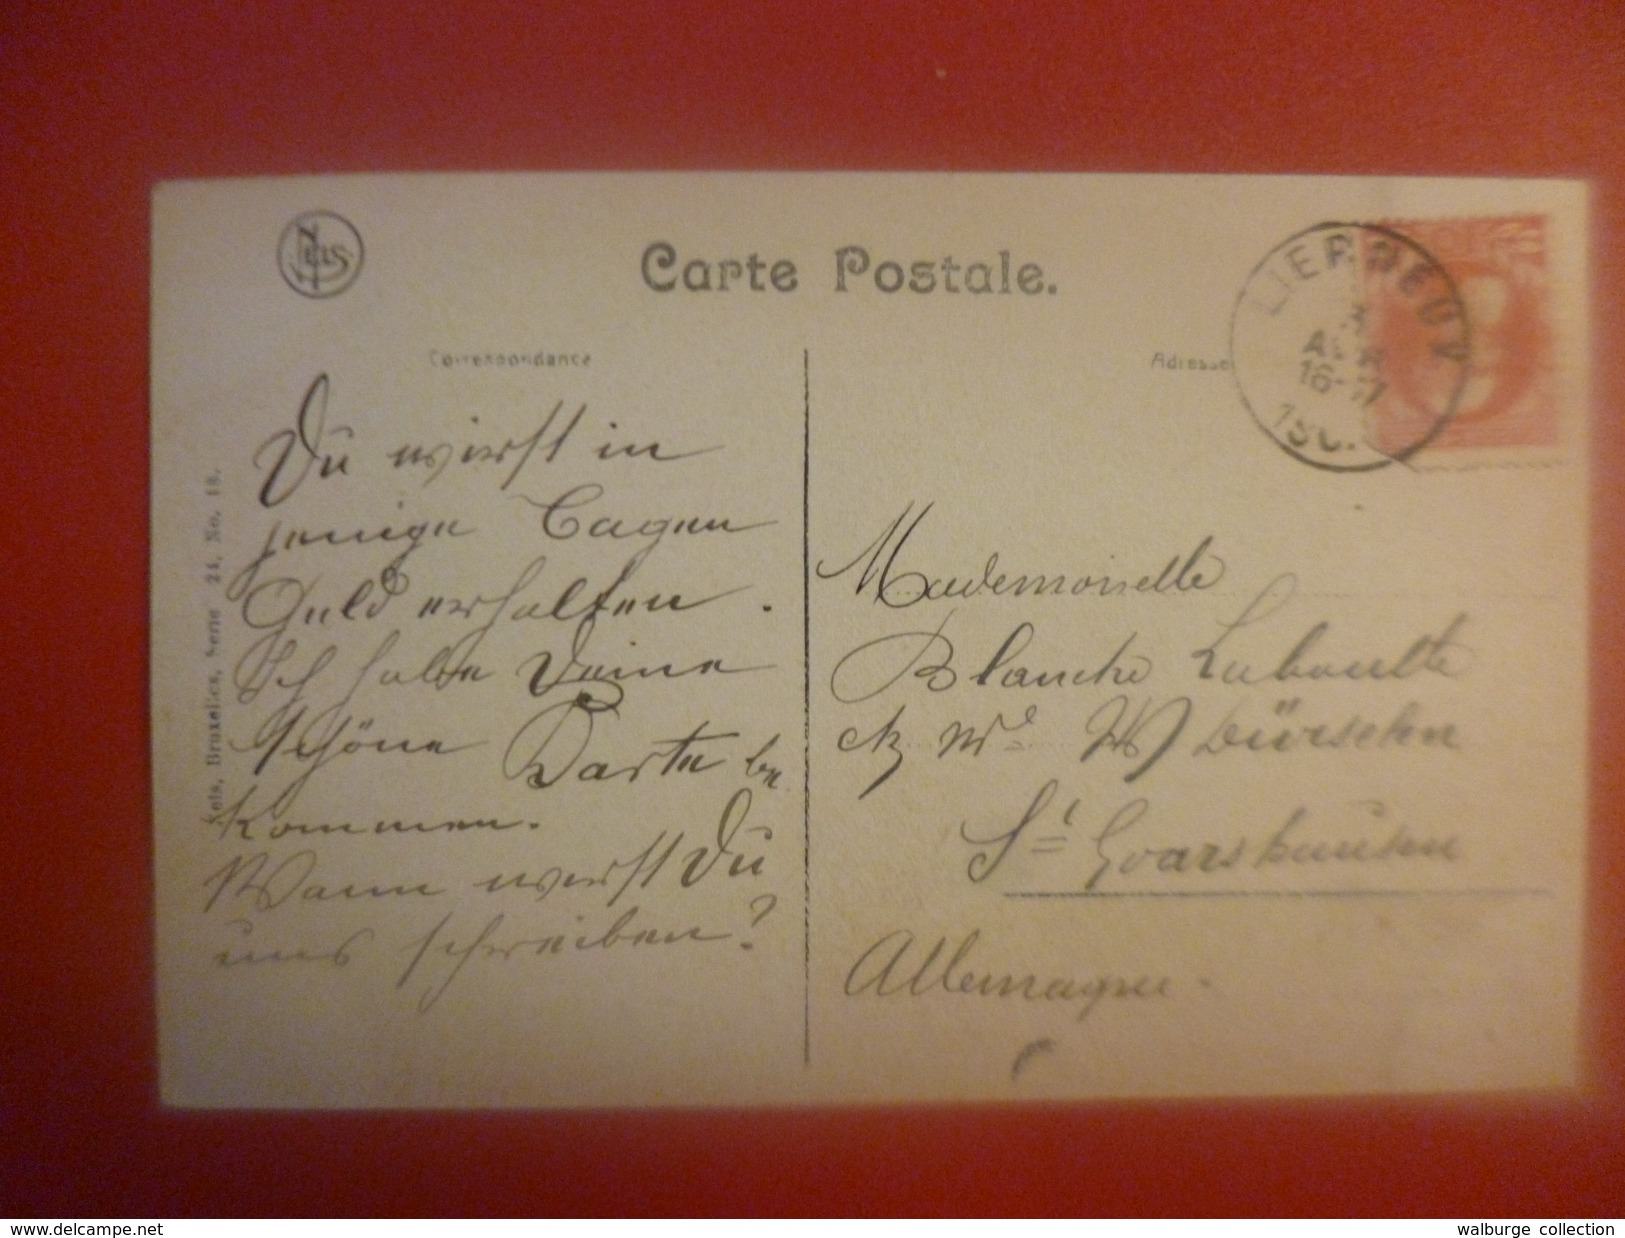 Nels
Carte Postale.
Correspondance
Adresse
LIERNEUX
AVR
16-17
190
Nels, Bruxelles, Serie 24, No. 18.
Du wirst in
jenige Tagen
Geld erhalten.
Ich habe Deine
schöne Karte be
kommen.
Wann wirst Du
uns schreiben?
Mademoiselle
Blanche
St Goarshausen
Allemagne.
https://www.delcampe.net
walburge_collection